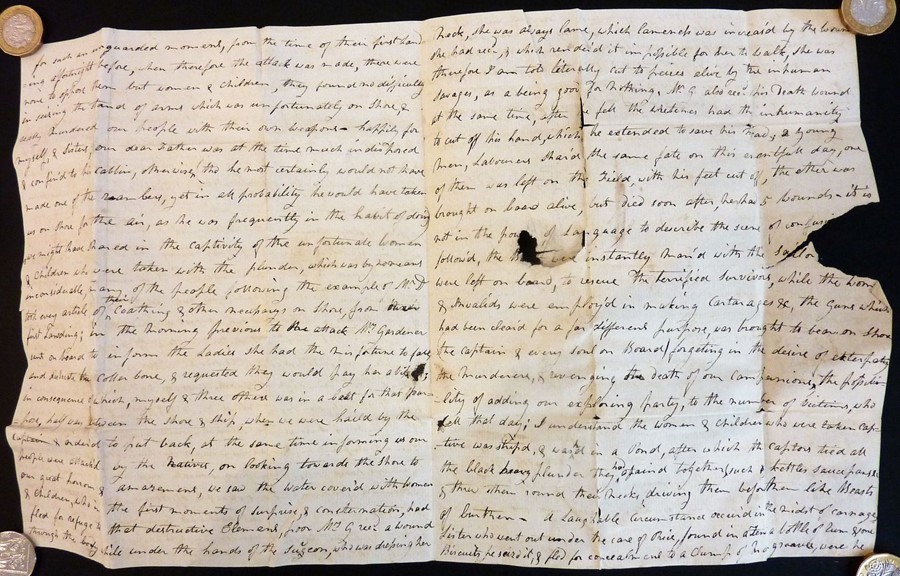 for such an unguarded moment, from the time of their first hand
ing a fortnight before, when therefore the attack was made, there were
none to oppose them but women & children, they found no difficulty
in seizing the stand of arms which was unfortunately on Shore, &
our people with their own weapons – happily for
myself & Sisters, our dear Father was at the time much indisposed
& confin'd to his cabbin, otherwise tho he most certainly would not have
made one of the members, yet in all probability he would have taken
us on shore for the air, as he was frequently in the habit of doing
we might have shared in the captivity of the unfortunate women
& children who were taken with the plunder, which was by no means
inconsiderable, many of the people following the example of Mr D
took every article of their Cloathing & other necessarys on Shore, from
first Landing; in the morning previous to the attack Mrs Gardener
sent on board to inform the Ladies she had the misfortune to fall
and dislocate the Collar bone, & requested they would pay her a visit;
in consequence which, myself & three others was in a boat for that pur
pose, half way between the shore & ship, when we were hail'd by the
Captain & order'd to put back, at the same time informing us our
people were attack'd by the Natives, on looking towards the Shore to
our great horror & amazement, we saw the water cover'd with women
& Children, who in the first moments of surprise, & consternation, had
fled for refuge to that destructive Element, poor Mrs G rec'd a wound
through the body while under the hands of the Surgeon, who was dressing her
Neck, she was always lame, which lameness was increas'd by the wound
she had rec'd, & which render'd it impossible for her to walk, she was
therefore I am told literally cut to pieces alive by the inhuman
Savages, as a being good for Nothing, Mr G also rec'd his Death wound
at the same time, after he fell the wretches had the inhumanity
to cut off his hand, which he extended to save his Head, 2 young
Men, Labourers shar'd the same fate on this eventfull day, one
of them was left on the Field, with his feet cut off, the other was
brought on board alive, but died soon after, perhaps it is
not in the power of Language to describe the scene of confusion
follow'd, the were instantly man'd with the Sailors
were left on board, to rescue the terrified survivors, while the women
& Invalids were employ'd in making Cartarages &c, the Guns which
had been clear'd for a far different purpose, was brought to bear on Shore
the Captain & every soul on Board forgeting in the desire of exterpating
the Murderers, & revenging the death of our Companions, the possibi-
lity of adding our exploring party, to the number of Victims, who
fell that day; I understand the Women & Children who were taken cap-
tive was strip'd, & wash'd in a Pond, after which the captors tied all
the black heavy plunder they had obtaind together, such as kettles saucepans &c
& threw them round their Necks, driving them before them like Beasts
of burthen – a Laughable circumstance occurd in the midst of carnage
Sister who went out under the care of Price, found in a tent a bottle of Rum & some
Biscuits, he seiz'd it, & fled for concealment to a Clump of Mangroves, were he